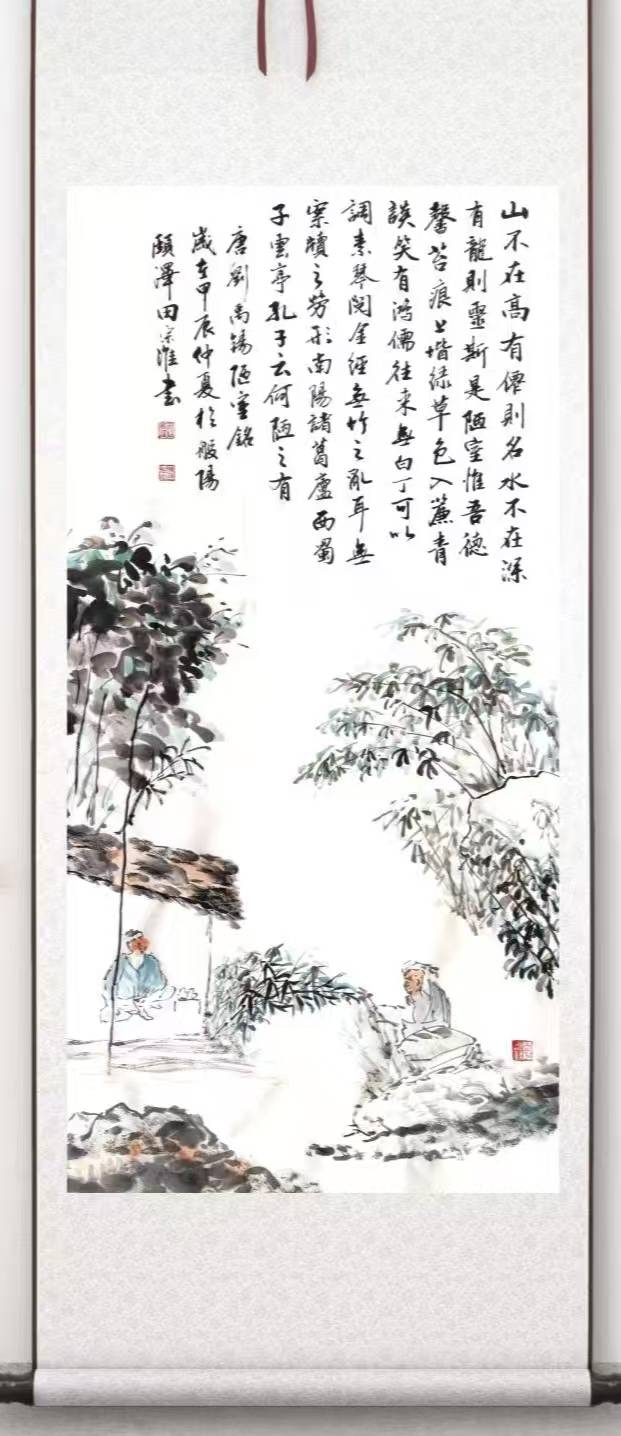 山不在高有僊則名水不在深
有龍則靈斯是陋室惟吾德
馨苔痕上堦綠草色入簾青
談笑有鴻儒往來無白丁可以
調素琴閱金經無竹之亂耳無
案牘之勞形南陽諸葛廬西蜀
子雲亭孔子云何陋之有
唐劉禹錫陋室銘
歲在甲辰仲夏於般陽
頤澤田宗淮書